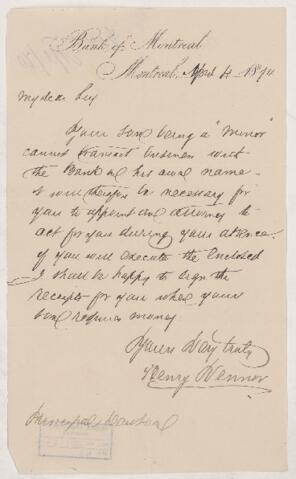 Bank of Montreal
Montreal, April 4 1874
My dear Sir
Your son being a "minor"
cannot transact business with
the Bank in his own name
it will therefore be necessary for
you to appoint an attorney to
act for you during your absence.
if you will execute the enclosed
I shall be happy to sign the
receipts for you when your
son requires money
Yours very truly
Henry Vennor
Principal Dawson